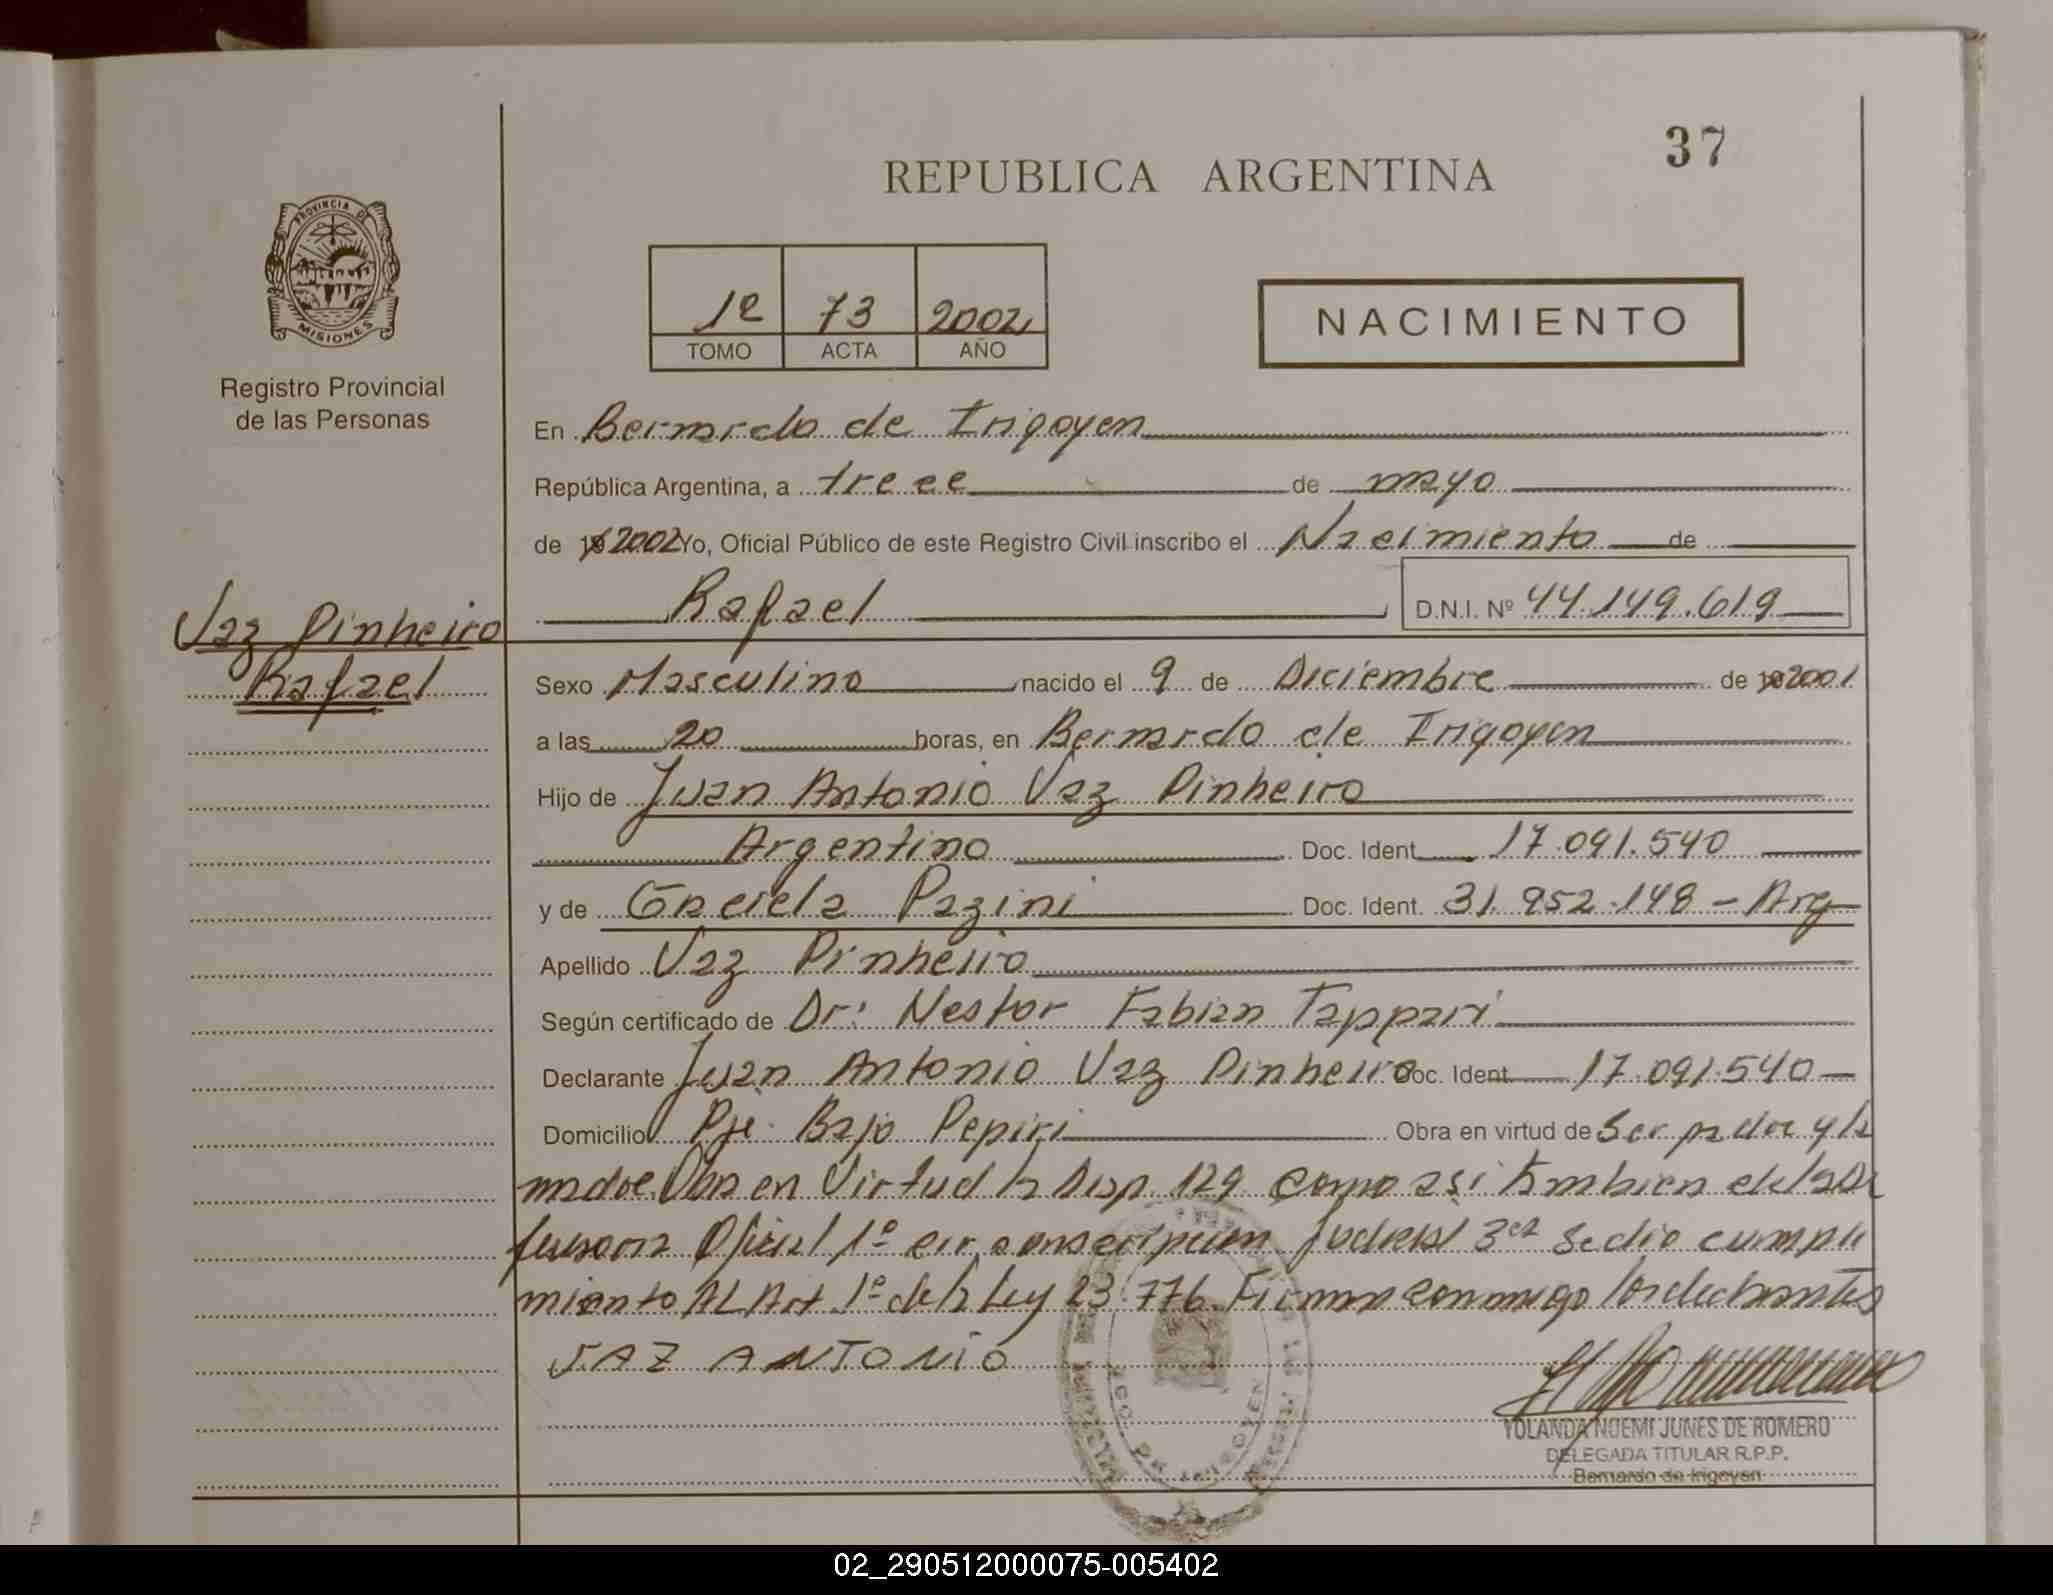 37
REPUBLICA ARGENTINA
PROVINCIA DE
MISIONES
Registro Provincial
de las Personas
1º 73 2002
TOMO ACTA AÑO
NACIMIENTO
En Bernardo de Irigoyen
República Argentina, a trece de mayo
de 19 2002 Yo, Oficial Público de este Registro Civil inscribo el Nacimiento de
Rafael D.N.I. Nº 44.149.619
Vaz Pinheiro
Rafael
Sexo Masculino nacido el 9 de Diciembre de 19 2001
a las 20 horas, en Bernardo de Irigoyen
Hijo de Juan Antonio Vaz Pinheiro
Argentino Doc. Ident. 17.091.540
y de Graciela Pazini Doc. Ident. 31.952.148 - Arg
Apellido Vaz Pinheiro
Según certificado de Dr: Nestor Fabian Tappari
Declarante Juan Antonio Vaz Pinheiro Doc. Ident. 17.091.540
Domicilio Pje. Bajo Pepiri Obra en virtud de ser padre y la
madre Obra en Virtud la Disp. 129 como asi tambien de la De
fensora Oficial 1º circunscripcion Judicial 3ra se dio cumpli
miento AL Art 1º de la Ley 23.776. Firman conmigo los declarantes
VAZ ANTONIO
YOLANDA NOEMI JUNES DE ROMERO
DELEGADA TITULAR R.P.P.
Bernardo de Irigoyen
02_290512000075-005402